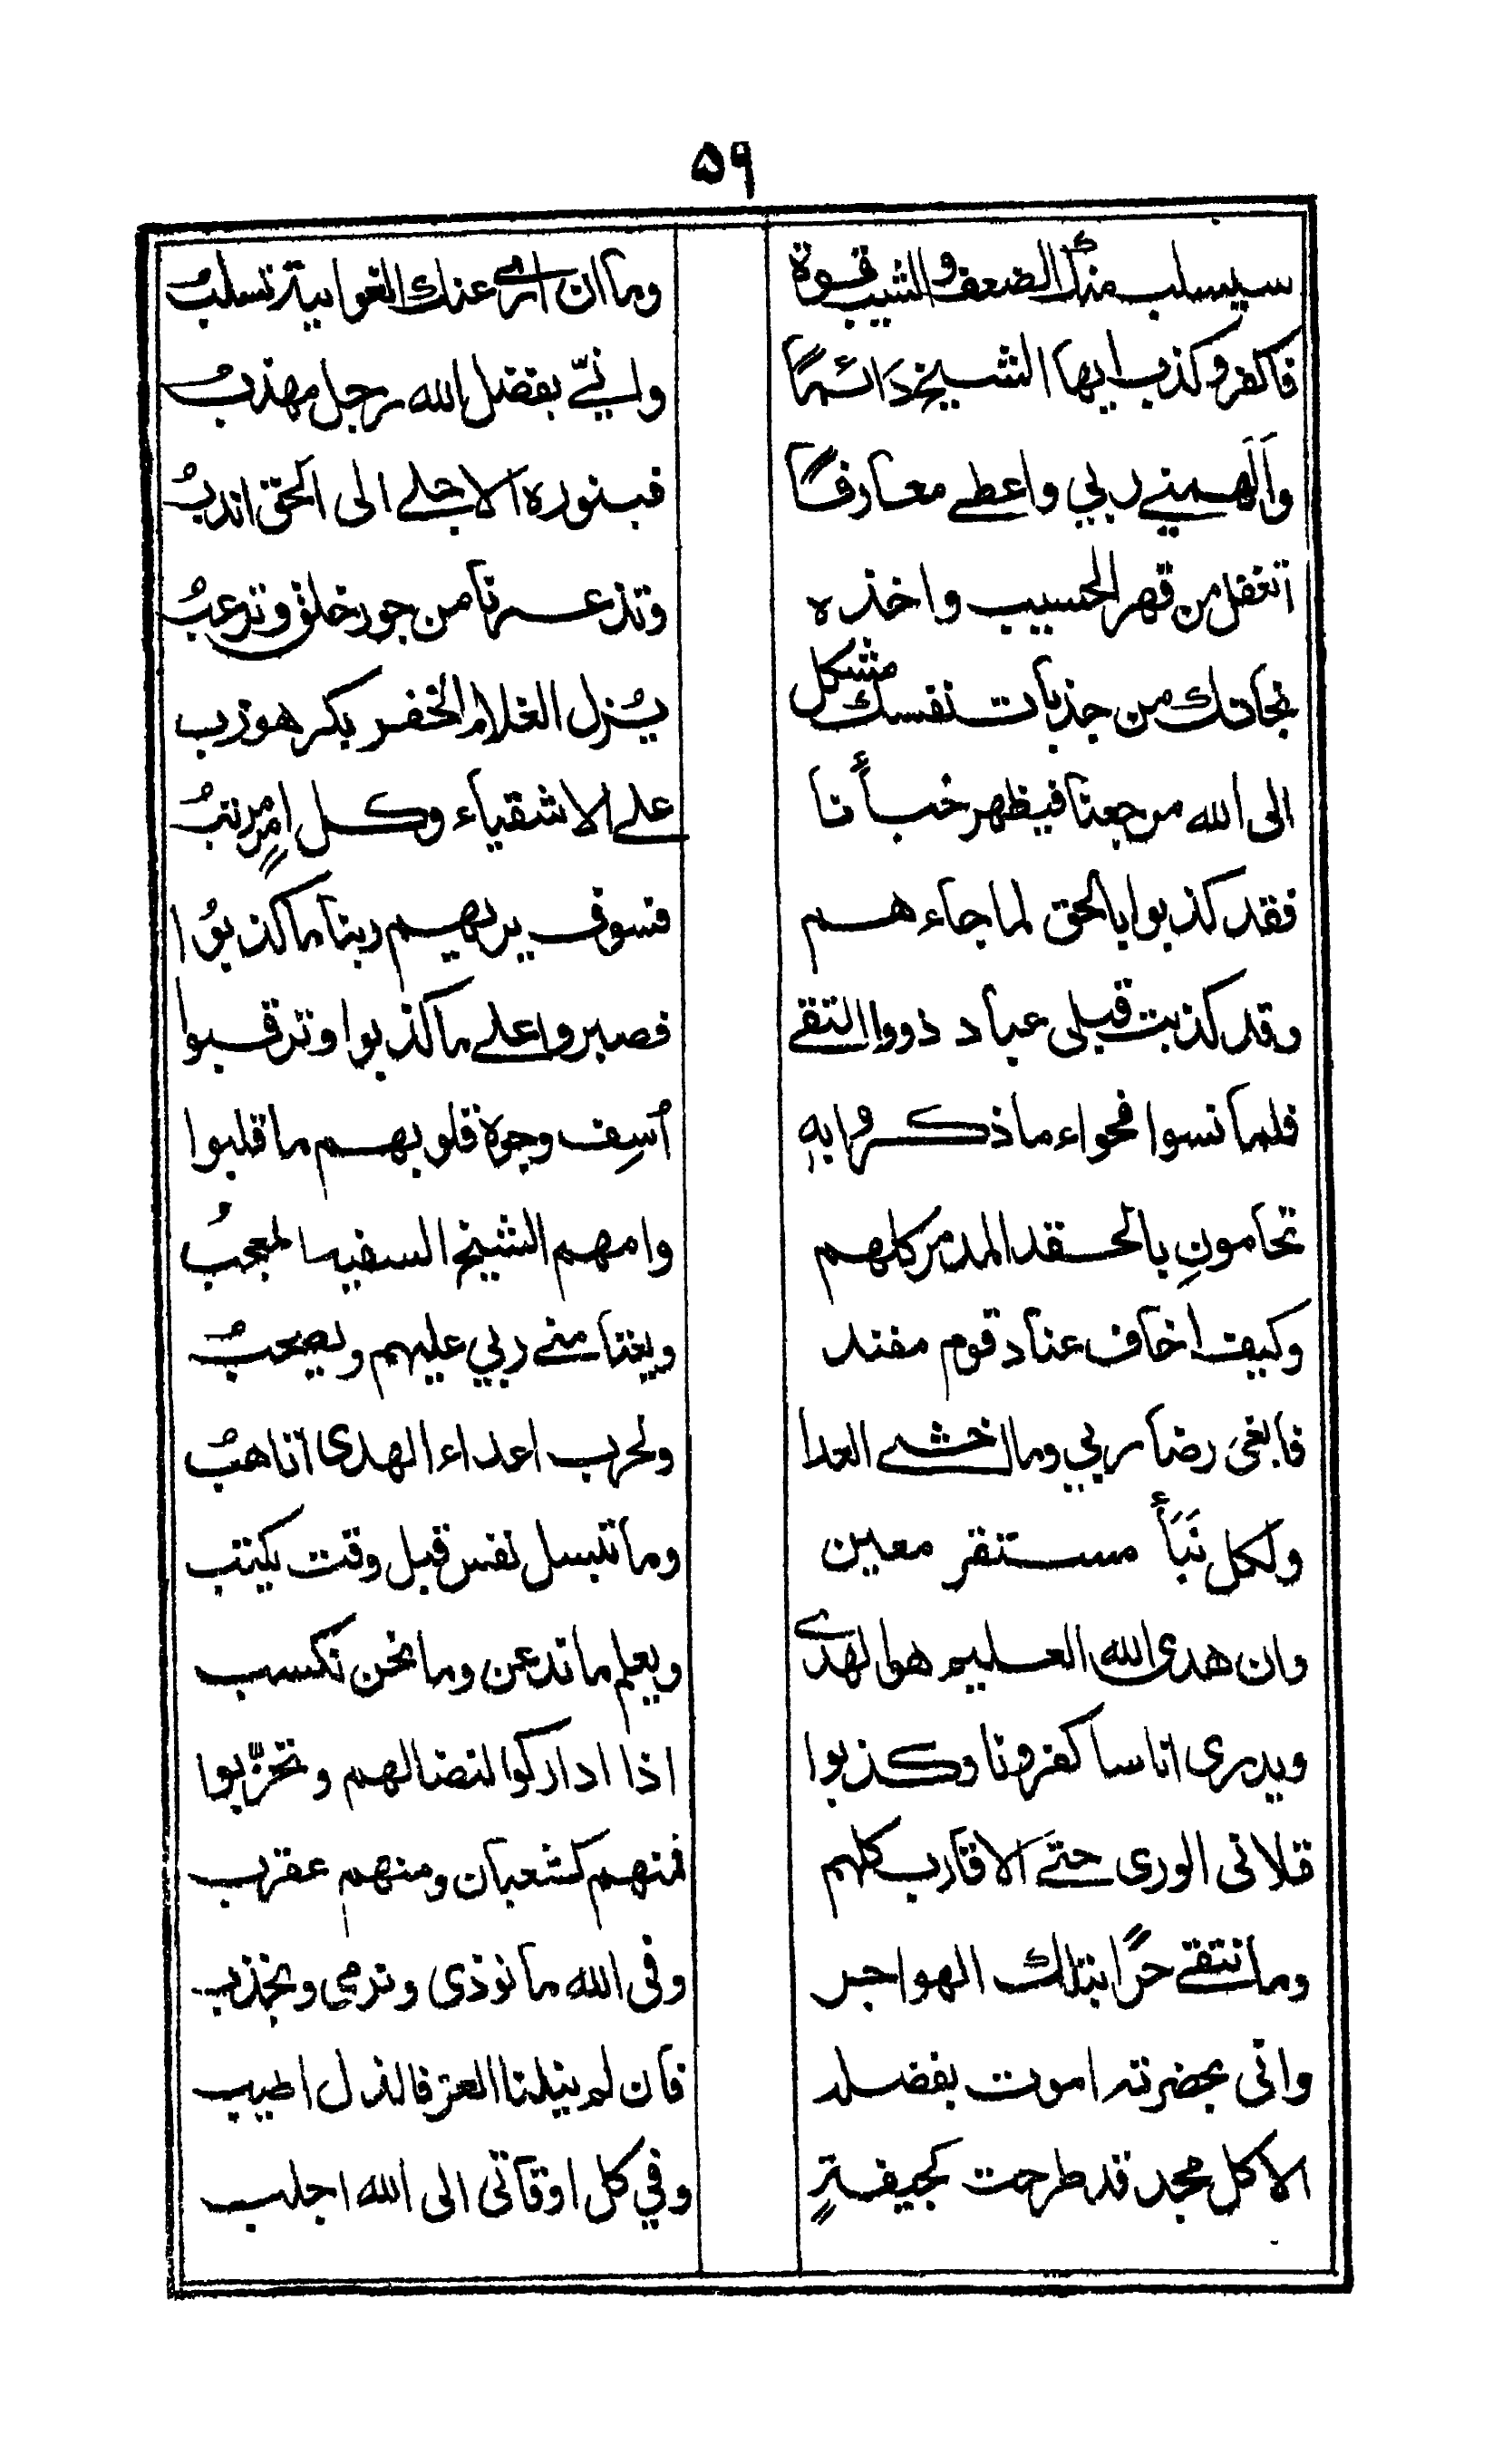 ۵۹
سيسلب منك الضعف والشيب قوة وما ان ارى عنك الغواية تسلبُ
فاكفر وكذب ايها الشيخ دَائمًا واِنيّ بفضل الله رجل مهذبُ
وَاَلهمني ربي واعطى معارفًا فبنوره الاجلى الى الحق اندبُ
اتغفل من قهر الحسيب واخذه وتذعرنا من جور خلق وترعبُ
نجاتك من جذبات نفسك مشكل يُزل الغلام الخفر بكر هوزب
الى الله مرجعنا فيظهر خبأنا على الاشقياء وكل امرٍ مرتبُ
فقد كذبوا بالحق لما جاءهم فسوف يريهم ربنا ما كذبوُا
وقد كذبت قبلى عباد ذووا التقى فصبروا على ما كذبوا وترقبوا
فلما نسوا فحواء ما ذكروا بهٖ اُسِف وجوه قلوبهم ما قلبوا
تحامونِ بالحقد المدمر كلهم وامهم الشيخ السفيه المعجبُ
وكيف اخاف عناد قوم مفند ويغتامنى ربي عليهم ويصحبُ
فابغىَ رضا ربي وما اخشى العدا ولحرب اعداء الهدى اتاهبُ
ولكل نَبَأ مستقر معين وما تبسل نفس قبل وقت يكتب
وان هدى الله العليم هو الهدى ويعلم ما ندعن وما نحن نكسب
ويدرى اناسا كفرونا وكذبوا اذا اداركوا لنضالهم وتحزّبوا
قلانى الورى حتَى الاقارب كلهم فمنهم كثعبان ومنهم عقرب
وما نتقى حرًا بتلك الهواجر وفى الله ما نوذى ونرمى ونجذب
وانى بحضرته اموت بفضله فان لم ينلنا العز فالذل اطيب
الا كل مجد قد طرحت كجيفةٍ وفي كل اوقاتى الى الله اجلب